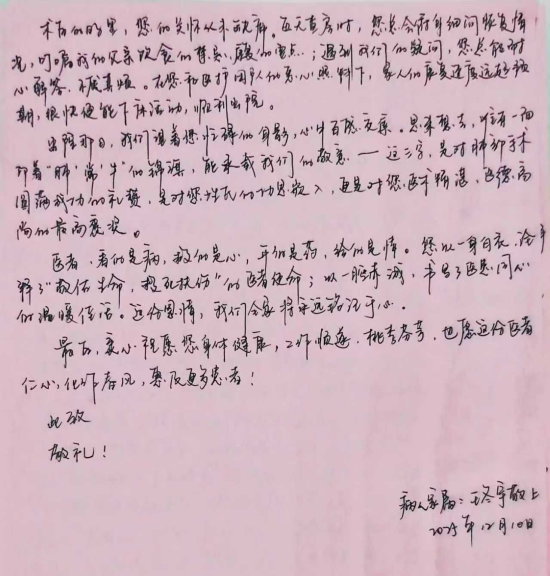 术后的日子里，您的关怀从未缺席。每天查房时，您总会俯身细问恢复情
况，叮嘱我们父亲饮食的禁忌、康复的重点；遇到我们的疑问，您总能耐
心解答、不厌其烦。在您和医护团队的悉心照料下，家人的康复速度远超预
期，很快便能下床活动，顺利出院。
出院那日，我们望着您忙碌的身影，心中百感交集。思来想去，唯有一面
印着“肺常牛”的锦旗，能承载我们的敬意——这三字，是对肺部手术
圆满成功的礼赞，是对您的功底，更是对您医术精湛、医德高
尚的最高褒奖。
医者，看的是病，救的是心，开的是药，给的是情。您以一身白衣，诠
释了“敬佑生命，救死扶伤”的医者使命；以一腔赤诚，书写了医患同心
的温暖佳话。这份恩情，我们全家将永远铭记于心。
最后，衷心祝愿您身体健康，工作顺遂，桃李芬芳，也愿这份医者
仁心，化作春风，惠及更多患者！
此致
敬礼！
病人家属：王冬宇敬上
2025年12月10日